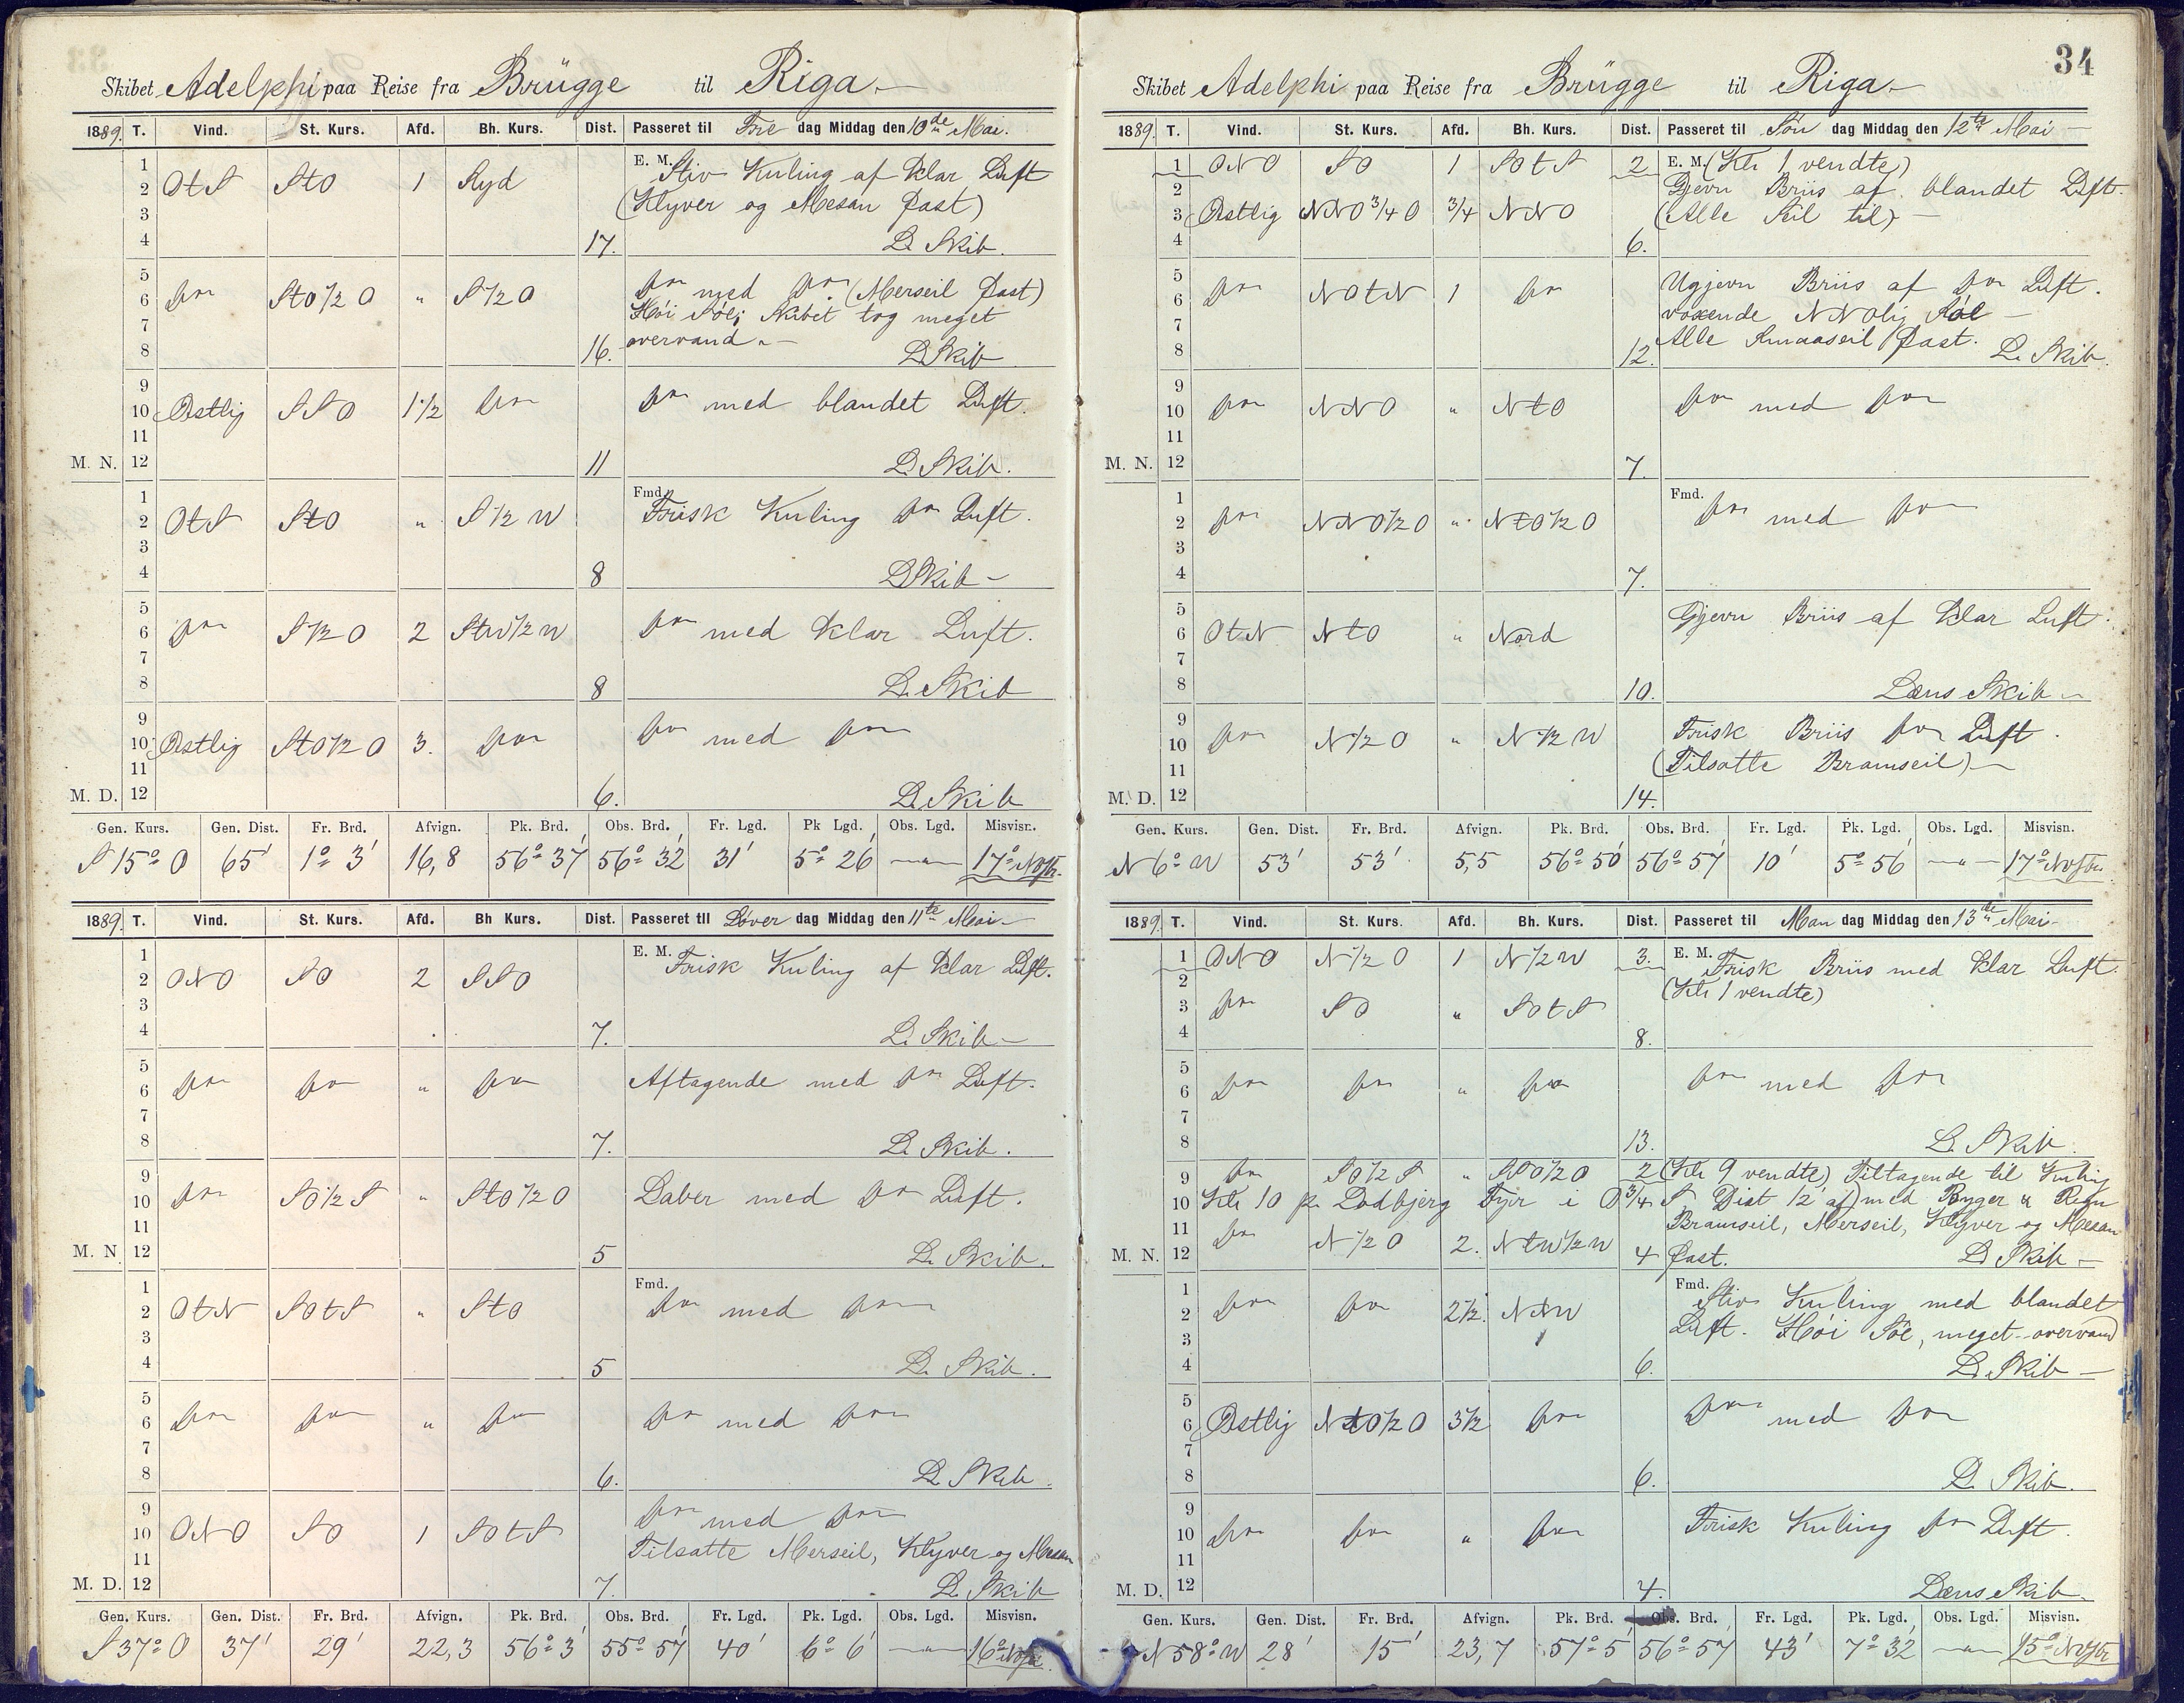 Skibet Adelphi paa Reise fra Brügge til Riga
1889. T. Vind. St. Kurs. Afd. Bh. Kurs. Dist. Passeret til Fre dag Middag den 10de Mai.
1 E. M. Stiv Kuling af klar Luft
2 OtS StO 1 Syd (Klyver og Mesan fast)
3
4 17. L. Skib.
5
6 do StO 1/2 O " S 1/2 O do med do (Merseil fast)
7 Høi Søe; Skibet tog meget
8 16. overvand. L. Skib
9
10 Østlig SSO 1 1/2 do do med blandet Luft.
11
M. N. 12 11 L. Skib.
1 Fmd. Frisk Kuling do Luft.
2 OtS StO " S 1/2 W
3
4 8 L. Skib
5
6 do S 1/2 O 2 StW 1/2 W do med klar Luft.
7
8 8 L. Skib
9
10 Østlig StO 1/2 O 3. do do med do
11
M. D. 12 6. L. Skib
Gen. Kurs. Gen. Dist. Fr. Brd. Afvign. Pk. Brd. Obs. Brd. Fr. Lgd. Pk Lgd. Obs. Lgd. Misvisn.
S 15° O 65' 1° 3' 16,8 56° 37' 56° 32' 31' 5° 26' — " — 17°
1889. T. Vind. St. Kurs. Afd. Bh Kurs. Dist. Passeret til Løver dag Middag den 11te Mai
1 E. M. Frisk Kuling af klar Luft.
2 ONO SO 2 SSO
3
4 7. L. Skib
5
6 do do " do Aftagende med do Luft.
7
8 7. L. Skib.
9
10 do SO 1/2 S " StO 1/2 O Laber med do Luft.
11
M. N 12 5 L. Skib.
1 Fmd.
2 OtN SOtS " StO do med do
3
4 5 L. Skib.
5
6 do do " do do med do
7
8 6. L. Skib.
9 do med do
10 ONO SO 1 SOtS Tilsatte Merseil, Klyver og Mesan
11
M. D. 12 7. L. Skib
Gen. Kurs. Gen. Dist. Fr. Brd. Afvign. Pk. Brd. Obs. Brd. Fr. Lgd. Pk. Lgd. Obs. Lgd. Misvisn.
S 37° O 37' 29' 22,3 56° 3' 55° 57' 40' 6° 6' — " — 16°
34
Skibet Adelphi paa Reise fra Brügge til Riga
1889. T. Vind. St. Kurs. Afd. Bh. Kurs. Dist. Passeret til Søn dag Middag den 12te Mai
1 ONO SO 1 SOtS 2 E. M. (Kl 1 vendte)
2 Gjevn Briis af blandet Luft.
3 Østlig NNO 3/4 O 3/4 NNO (Alle Seil til)
4 6.
5 Ugjevn Briis af do Luft.
6 do NOtN 1 do voxende NNOlig Søe
7 Alle Smaaseil fast.
8 12. L. Skib.
9
10 do NNO " NtO do med do
11
M. N. 12 7.
1 Fmd.
2 do NNO 1/2 O " NtO 1/2 O do med do
3
4 7.
5 Gjevn Briis af klar Luft.
6 OtN NtO " Nord
7
8 10. Læns Skib
9 Frisk Briis do Luft.
10 do N 1/2 O " N 1/2 W
11 (Tilsatte Bramseil)
M. D. 12 14.
Gen. Kurs. Gen. Dist. Fr. Brd. Afvign. Pk. Brd. Obs. Brd. Fr. Lgd. Pk. Lgd. Obs. Lgd. Misvisn.
N 6° W 53' 53' 5,5 56° 50' 56° 57' 10' 5° 56' — " — 17°
1889. T. Vind. St. Kurs. Afd. Bh. Kurs. Dist. Passeret til Man dag Middag den 13de Mai
1 ONO N 1/2 O 1 N 1/2 W 3. E. M. Frisk Briis med klar Luft.
2 (Kl 1 vendte)
3 do SO " SOtS
4 8.
5
6 do do " do do med do
7
8 13. L. Skib.
9 do SO 1/2 S " SSO 1/2 O 2 (Kl 9 vendte) Tiltagende til Kuling
10 Kl 10 p. Lodbjerg Fyr i O 3/4 S Dist 12' af) med Byger & Regn
11 Bramseil, Merseil, Klyver og Mesan
M. N. 12 do N 1/2 O 2. NtW 1/2 W 4 fast. L. Skib
1 Fmd. Stiv Kuling med blandet
2 do do 2 1/2. NtW Luft. Høi Søe, meget overvand
3
4 6. L. Skib
5
6 Østlig NtO 1/2 O 3 1/2 do do med do
7
8 6. L. Skib.
9
10 do do " do Frisk Kuling do Luft.
11
M. D. 12 4. Læns Skib.
Gen. Kurs. Gen. Dist. Fr. Brd. Afvign. Pk. Brd. Obs. Brd. Fr. Lgd. Pk. Lgd. Obs. Lgd. Misvisn.
N 58° W 28' 15' 23,7 57° 5' 56° 57' 43' 7° 32' — " — 15°